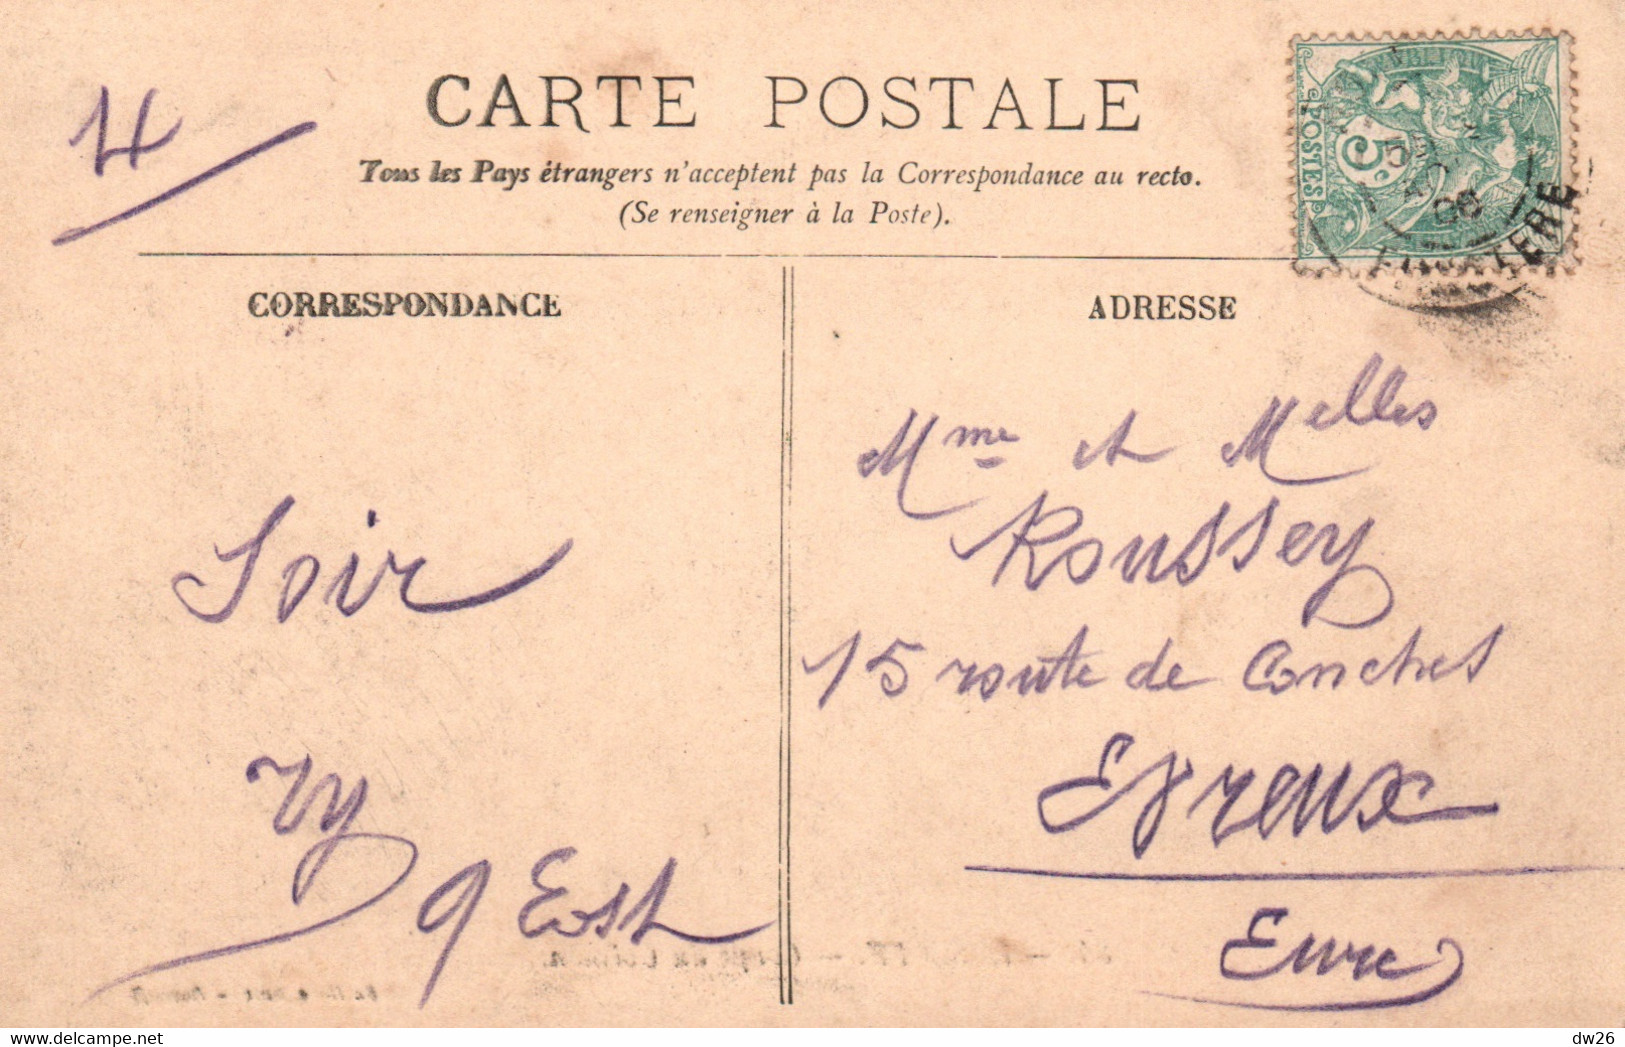 CARTE POSTALE
Tous les Pays étrangers n'acceptent pas la Correspondance au recto.
(Se renseigner à la Poste).
POSTES
5c
06
FINISTERE
CORRESPONDANCE
ADRESSE
Soir
9
Mme et Melles
Roussey
15 route de Conches
Evreux
Eure
dw26